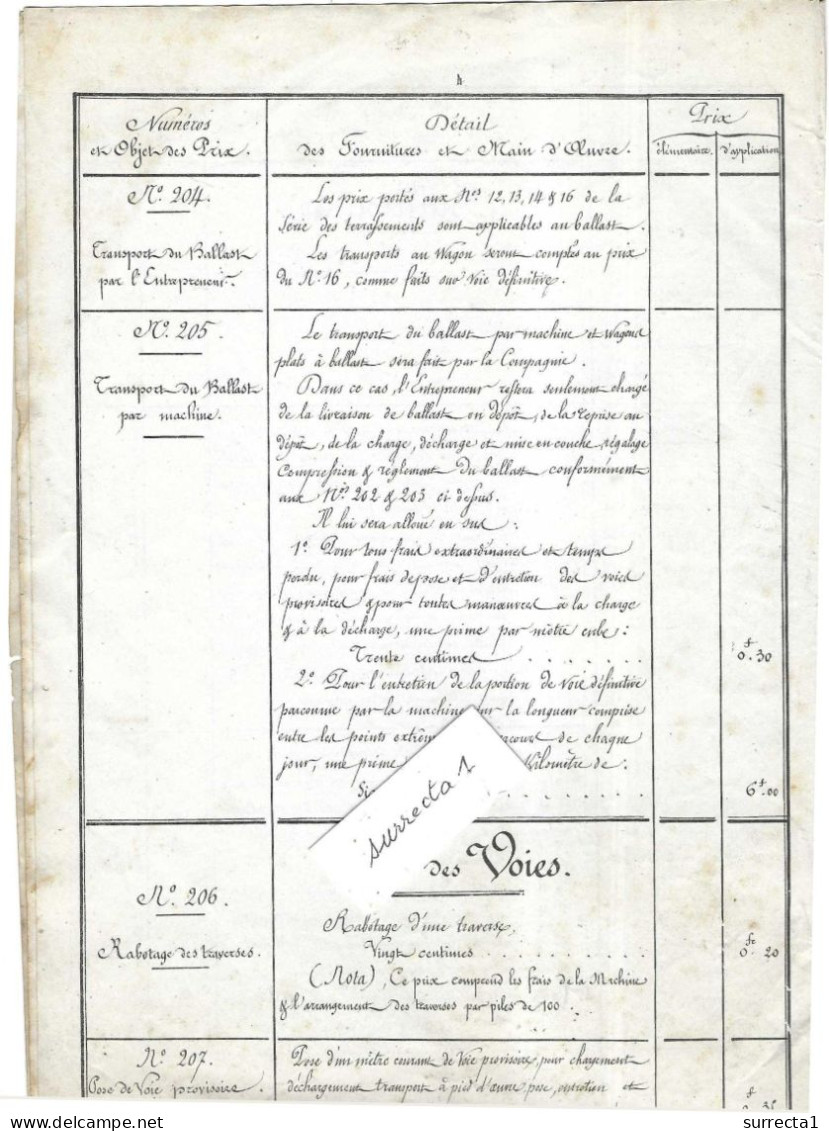 4
Numéros
et Objet des Prix.
Détail
des Fournitures et Main d'Œuvre.
Prix
élémentaire. d'application
Nº 204.
Transport du Ballast
par l'Entrepreneur.
Les prix portés aux Nos 12, 13, 14 & 16 de la
Série des terrassements sont applicables au ballast.
Les transports au Wagon seront comptés au prix
du Nº 16, comme faits sur Voie définitive.
Nº 205
Transport du Ballast
par machine.
Le transport du ballast par machine et Wagons
plats à ballast sera fait par la Compagnie.
Dans ce cas, l'Entrepreneur restera seulement chargé
de la livraison de ballast en dépôt, de la reprise au
dépôt, de la charge, décharge et mise en couche, régalage
Compression & règlement du ballast conformément
aux Nos 202 & 203 ci dessus.
Il lui sera alloué en sus :
1º Pour tous frais extraordinaires et temps
perdu, pour frais de pose et d'entretien des voies
provisoires & pour toutes manœuvres à la charge
& à la décharge, une prime par mètre cube :
Trente centimes . . . . . . 0f.30
2º Pour l'entretien de la portion de Voie définitive
parcourue par la machine sur la longueur comprise
entre les points de chaque
jour, une prime Kilomètre de.
. . . . . . 6f.00
surrecta 1
des Voies.
Nº 206.
Rabotage des traverses.
Rabotage d'une traverse,
Vingt centimes . . . . . . 0fr 20
(Nota), Ce prix comprend les frais de la Machine
& l'arrangement des traverses par piles de 100.
Nº 207.
Pose de Voie provisoire.
Pose d'un mètre courant de Voie provisoire, pour chargement
déchargement transport à pied d'œuvre, pose, entretien et
surrecta1